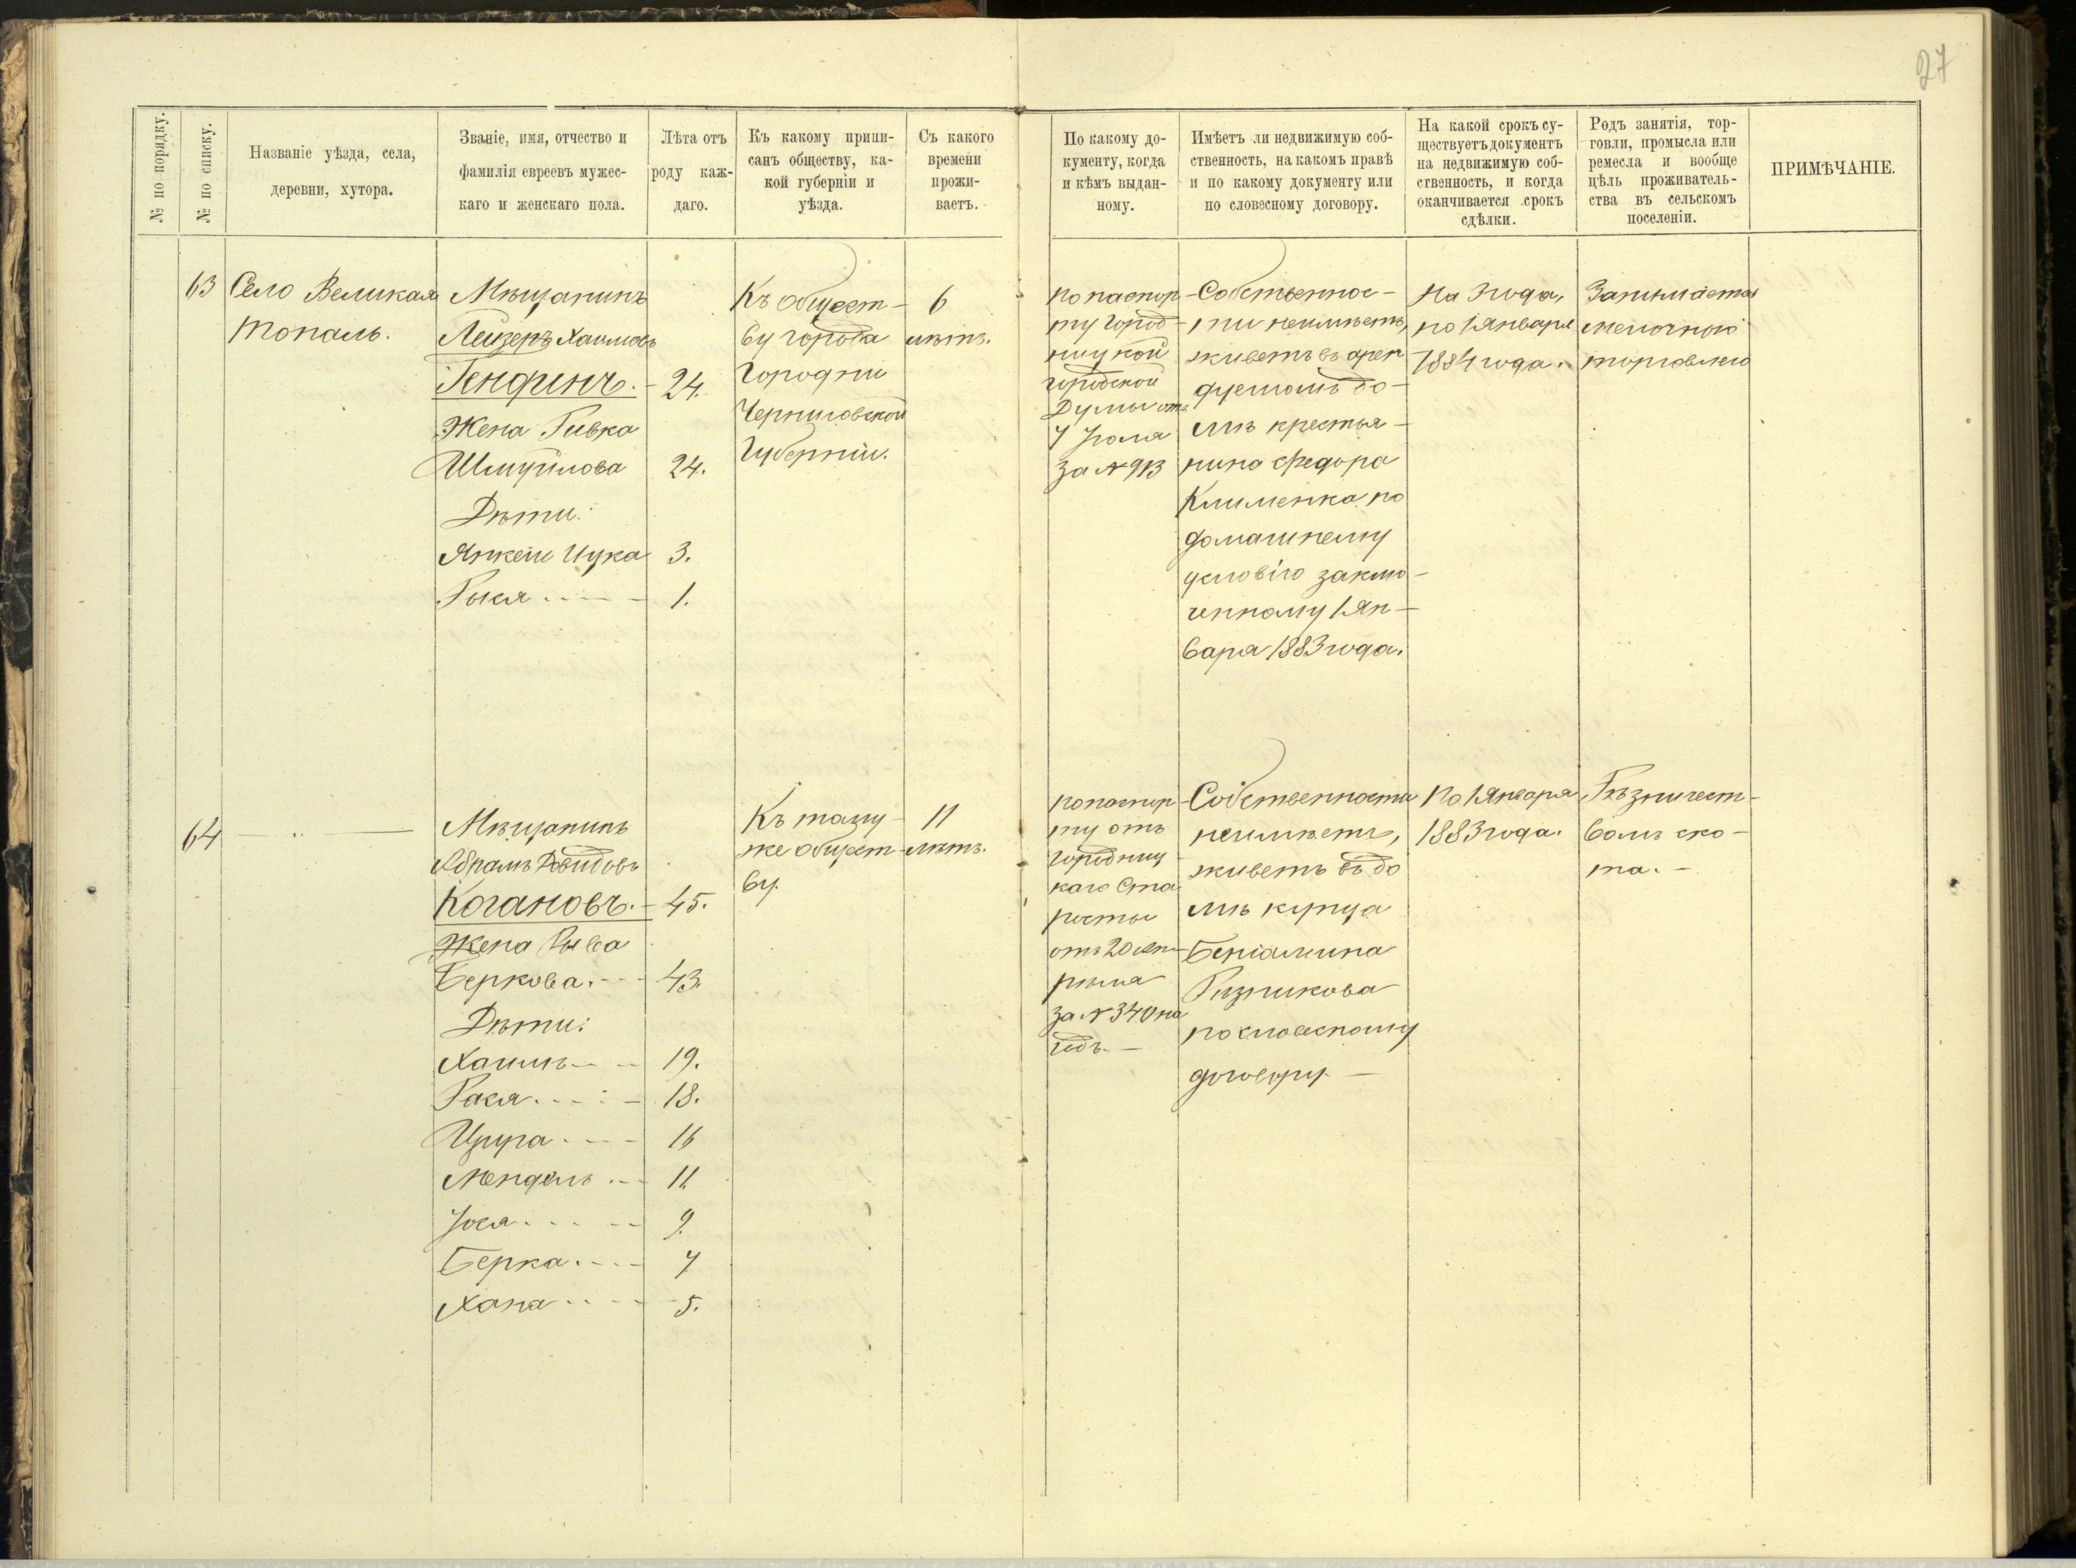 27
№ по порядку.
№ по списку.
Названіе уѣзда, села,
деревни, хутора.
Званіе, имя, отчество и
фамилія евреевъ мужес-
каго и женскаго пола.
Лѣта отъ
роду каж-
даго.
Къ какому припи-
санъ обществу, ка-
кой губерніи и
уѣзда.
Съ какого
времени
прожи-
ваетъ.
По какому до-
кументу, когда
и кѣмъ выдан-
ному.
Имѣетъ ли недвижимую соб-
ственность, на какомъ правѣ
и по какому документу или
по словесному договору.
На какой срокъ су-
ществуетъ документъ
на недвижимую соб-
ственность, и когда
оканчивается срокъ
сдѣлки.
Родъ занятія, тор-
говли, промысла или
ремесла и вообще
цѣль проживатель-
ства въ сельскомъ
поселеніи.
ПРИМѢЧАНІЕ.
63
Село Великая
Тополь.
Мѣщанинъ
Лейзеръ Хаимовъ
Генфинъ. - 24.
Жена Ривка
Шмуйлова 24.
Дѣти:
Янкель Цука 3.
Рыся 1.
Къ общест-
ву города
Городни
Черниговской
Губерніи.
6
лѣтъ.
По паспор-
ту Город-
ницкой
городской
Думы отъ
7 Іюля
за № 913
Собственнос-
ти неимѣетъ,
живетъ въ арен
дуемомъ до-
мѣ крестья-
нина Федора
Клименка по
домашнему
условію заклю-
ченному 1 Ян-
варя 1883 года.
На 3 года,
по 1 Января
1884 года.
Занимается
мелочною
торговлею
64
Мѣщанинъ
Абрамъ Довидовъ
Когановъ. - 45.
Жена Рыва
Беркова. 43.
Дѣти:
Хаимъ 19.
Рася 18.
Цура 16
Мендель 11.
Іося 9.
Берка 7
Хана 5.
Къ тому-
же общест-
ву.
11
лѣтъ.
По паспор-
ту отъ
Городниц
каго Ста
росты
отъ 20 Ап-
рѣля
за № 340 на
годъ. -
Собственности
неимѣетъ,
живетъ въ до
мѣ купца
Беніамина
Рѣзникова
по словесному
договору. -
По 1 Января
1883 года.
Рѣзничест-
вомъ ско-
та. -